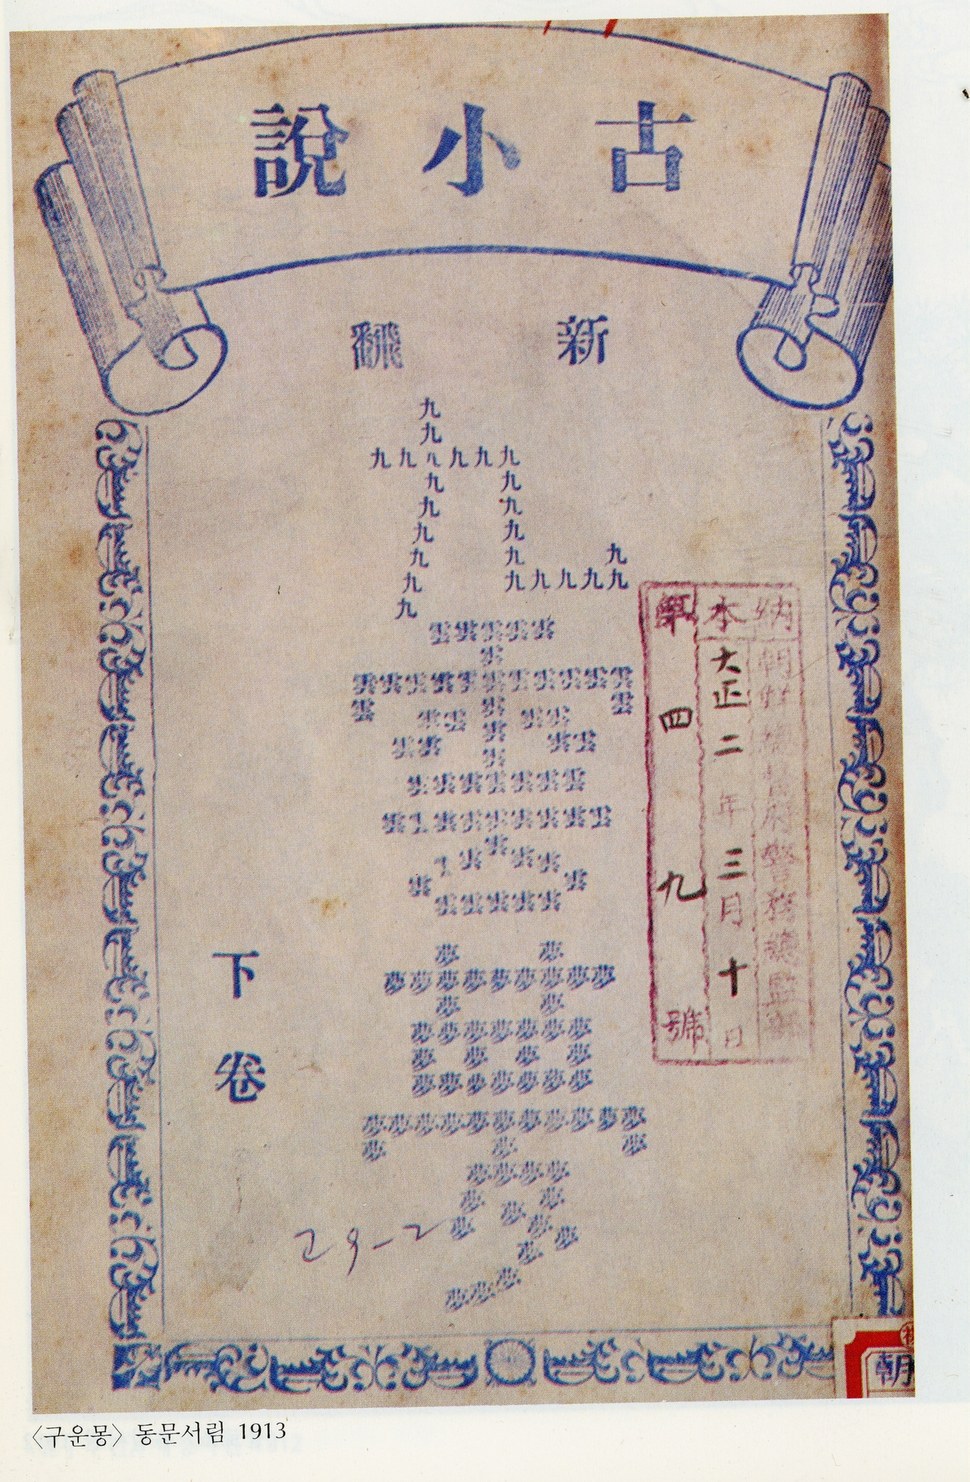 古小說
新飜
九
雲
夢
下卷
納本
朝鮮總督府警務總監部
大正二年三月十日
第四九號
29-2
朝
〈구운몽〉 동문서림 1913